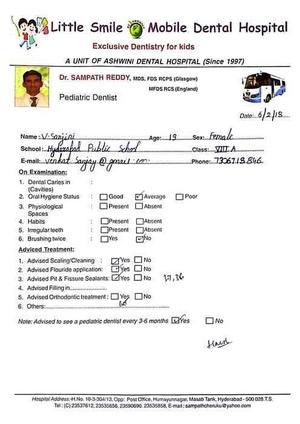 Little Smile Mobile Dental Hospital
Exclusive Dentistry for kids
A UNIT OF ASHWINI DENTAL HOSPITAL (Since 1997)
Dr. SAMPATH REDDY, MDS, FDS RCPS (Glasgow)
MFDS RCS (England)
Pediatric Dentist
Date: 6/2/18
Name: V. Sanjini Age: 13 Sex: Female
School: Hyderabad Public School Class: VIII A
E-mail: Phone:
On Examination:
1. Dental Caries in :
(Cavities)
2. Oral Hygiene Status : Good Average Poor
3. Physiological : Present Absent
Spaces
4. Habits : Present Absent
5. Irregular teeth : Present Absent
6. Brushing twice : Yes No
Adviced Treatment:
1. Advised Scaling/Cleaning : Yes No
2. Advised Flouride application: Yes No
3. Advised Pit & Fissure Sealants: Yes No
4. Advised Filling in
5. Advised Orthodontic treatment : Yes No
6. Others:
Note: Advised to see a pediatric dentist every 3-6 months Yes No
Hospital Address: H.No. 18-3-304/13, Opp: Post Office, Humayunnagar, Masab Tank, Hyderabad - 500 028 T.S.
Tel: (C) 23537612, 23535858, 23590690 23535858, E-mail: sampathcheruku@yahoo.com